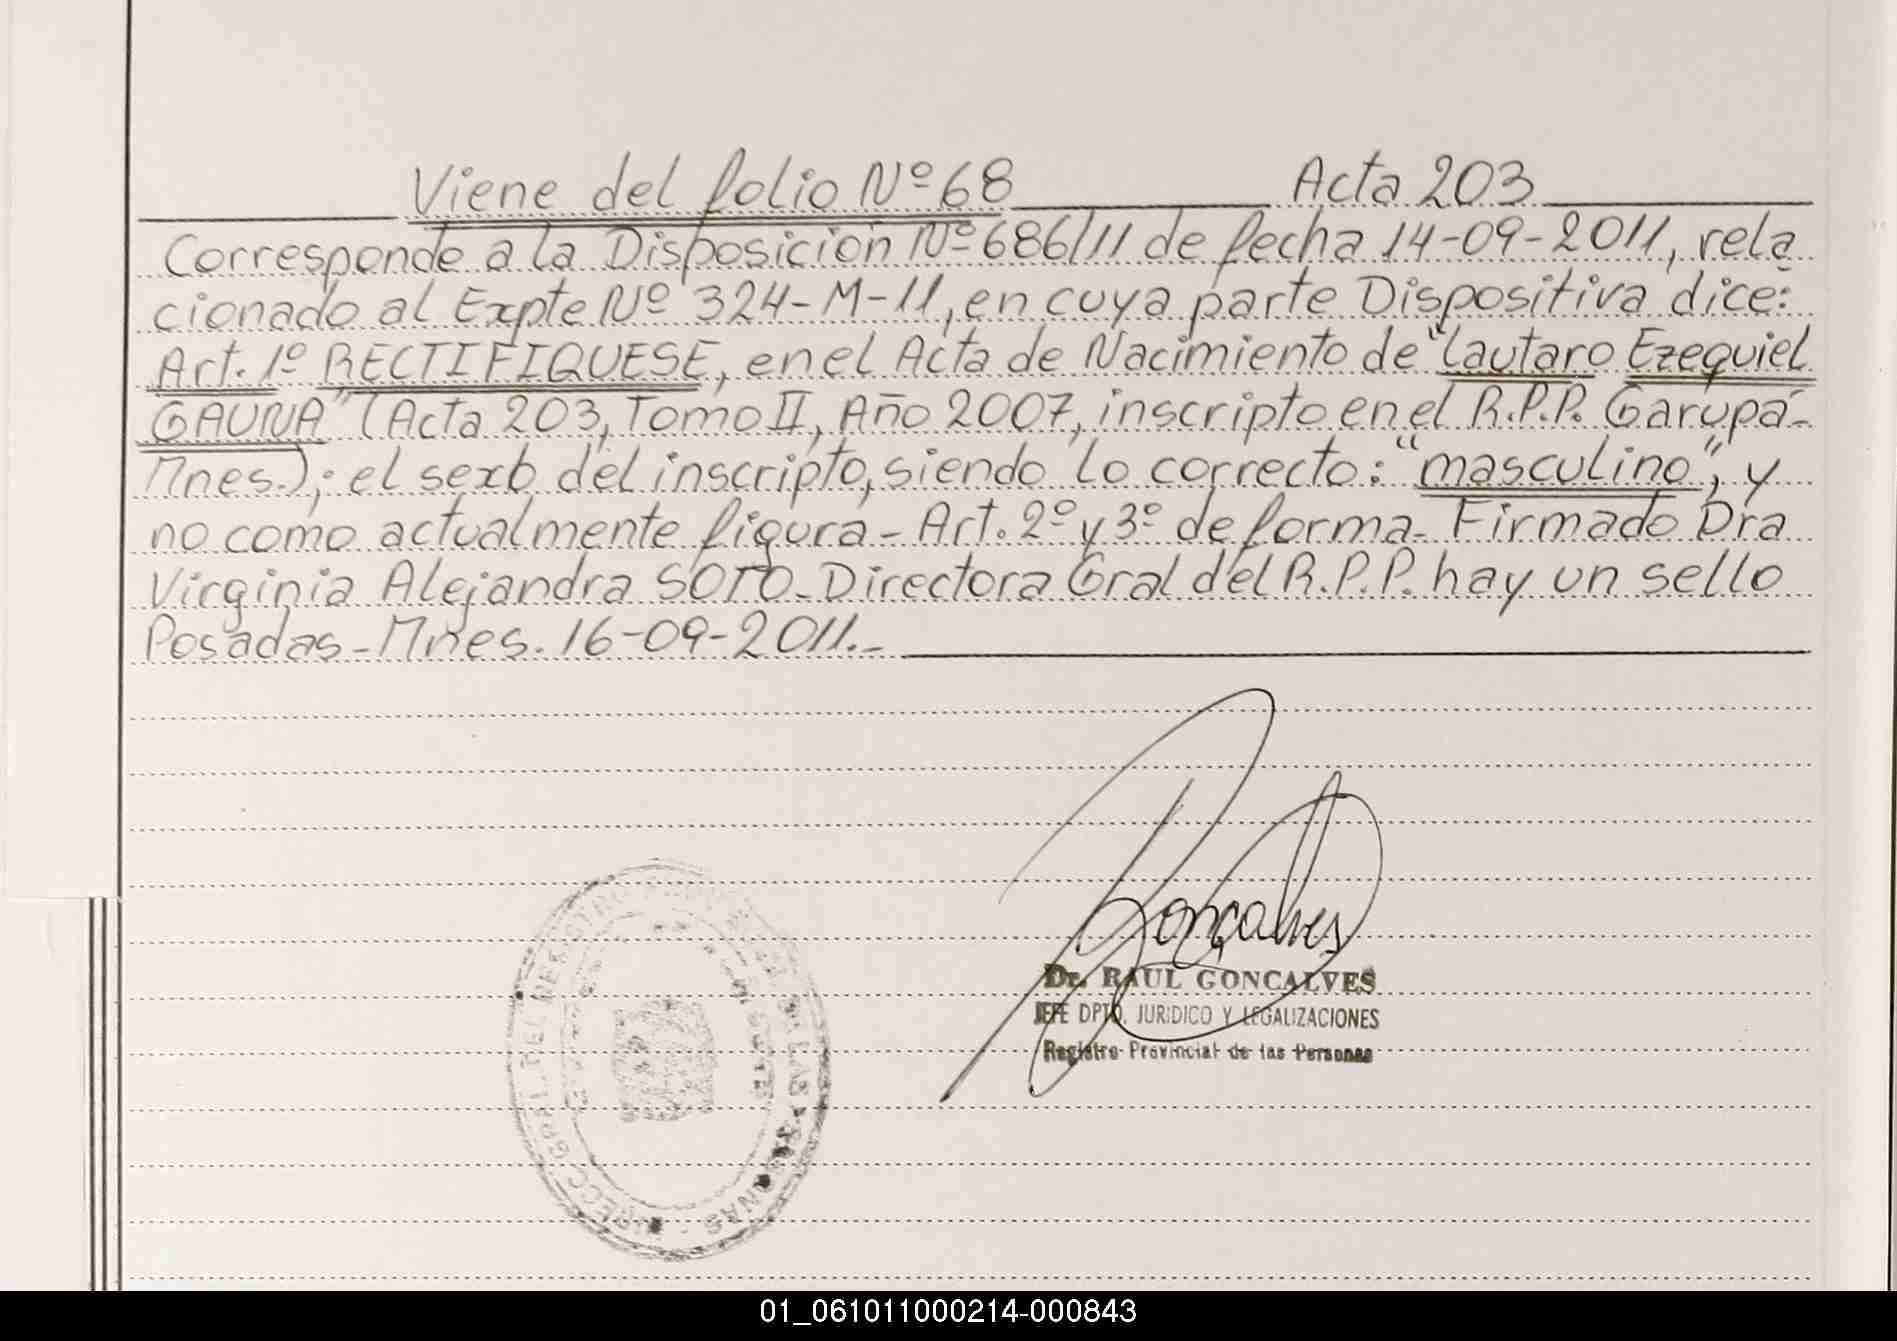 Viene del folio Nº 68 Acta 203
Corresponde a la Disposición Nº 686/11 de fecha 14-09-2011, rela
cionado al Expte Nº 324-M-11, en cuya parte Dispositiva dice:
Art. 1º RECTIFIQUESE, en el Acta de Nacimiento de "Lautaro Ezequiel
GAUNA" (Acta 203, Tomo II, Año 2007, inscripto en el R.P.P. Garupá-
Mnes.); el sexo del inscripto, siendo lo correcto: "masculino", y
no como actualmente figura- Art. 2º y 3º de forma- Firmado Dra
Virginia Alejandra SOTO- Directora Gral del R.P.P. hay un sello
Posadas- Mnes. 16-09-2011.-
Goncalves
Dr. RAUL GONCALVES
JEFE DPTO. JURIDICO Y LEGALIZACIONES
Registro Provincial de las Personas
DIRECC. GRAL. DEL REGISTRO DE LAS PERSONAS
01_061011000214-000843